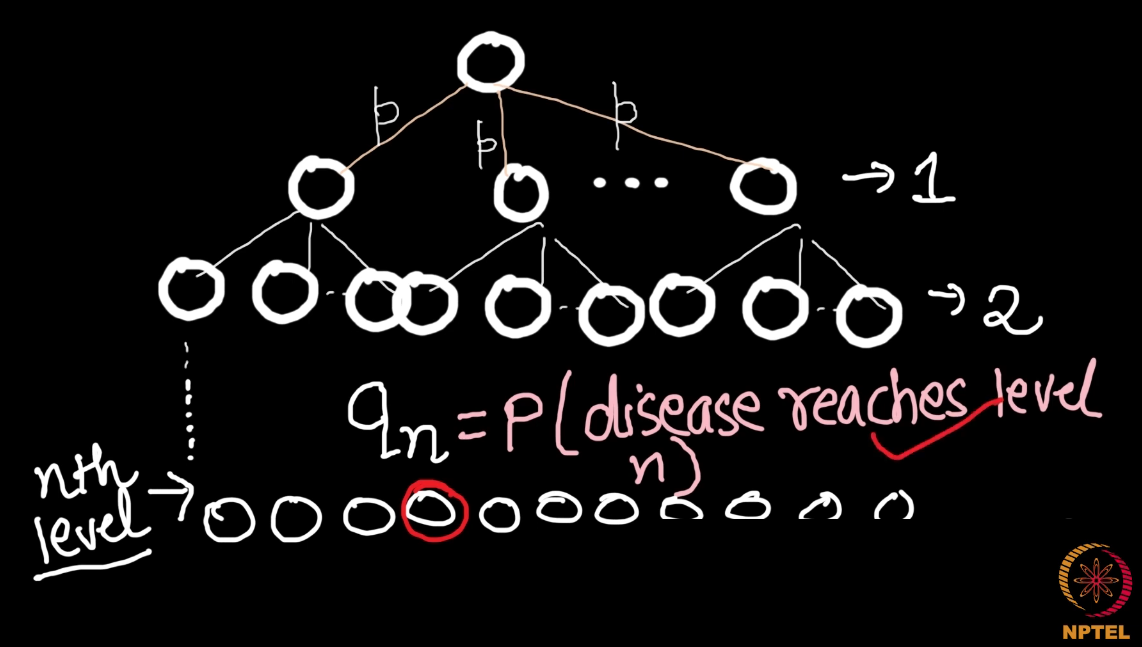 p p p
→ 1
→ 2
qn = P(disease reaches level
n)
nth →
level
NPTEL